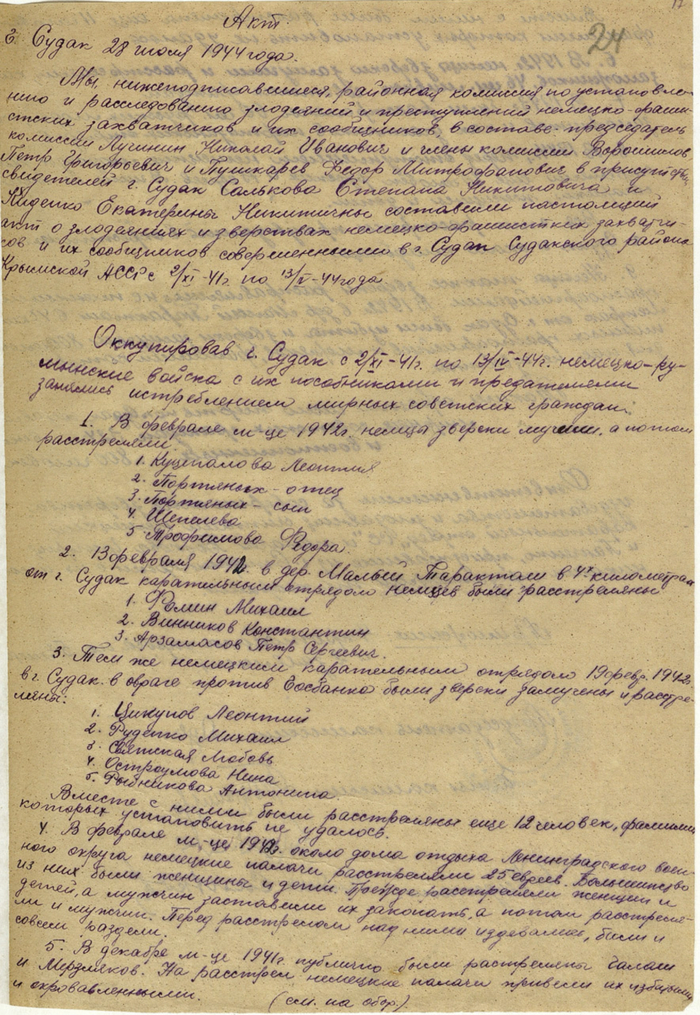 24
Акт.
г. Судак 28 июля 1944 года.
Мы, нижеподписавшиеся, районная комиссия по установле-
нию и расследованию злодеяний и преступлений немецко-фаши-
стских захватчиков и их сообщников, в составе председатель
комиссии Лучинин Николай Иванович и члены комиссии Ворошилов
Петр Григорьевич и Пушкарев Федор Митрофанович в присутствии
свидетелей г. Судак Салькова Степана Никитовича и
Екатерины Никитичны составили настоящий
акт о злодеяниях и зверствах немецко-фашистких захватчи-
ков и их сообщников совершенными в г. Судак Судакского района
Крымской АССР с 2/XI-41г. по 13/IV-44 года
Оккупировав г. Судак с 2/XI-41г. по 13/IV-44г. немецко-ру-
мынские войска с их пособниками и предателями
занялись истреблением мирных советских граждан.
1. В феврале м-це 1942г. немца зверски мучили, а потом
расстреляли
1. Куцепалова Леонтия
2. Портяных - отец
3. Портяных - сын
4. Шепелева
5. Трофимова Федора.
2. 13 февраля 1942 в дер. Малый Таракташ в 4х километрах
от г. Судак карательным отрядом немцев были расстреляны
1. Фомин Михаил
2. Винников Константин
3. Арзамасов Петр Сергеевич.
3. Тем же немецким карательным отрядом 19 февр. 1942
в г. Судак в овраге против Госбанка были зверски замучены и расстре-
ляны:
1. Цикупов Леонтий
2. Руденко Михаил
3. Святская Любовь
4. Остроумова Нина
5. Рыбникова Антонина
Вместе с ними были расстреляны еще 12 человек, фамилии
которых установить не удалось.
4. В феврале м-це 1942 около дома отдыха Ленинградского воен-
ного округа немецкие палачи расстреляли 25 евреев. Большинство
из них были женщины и дети. Прежде расстреляли женщин и
детей, а мужчин заставили их закопать, а потом расстреля-
ли и мужчин. Перед расстрелом над ними издевались, били и
совсем раздели.
5. В декабре м-це 1941г. публично были растреляны Чалаш
и Мерзляков. На расстрел немецкие палачи привели их избитыми
и окровавленными. (см. на обор.)